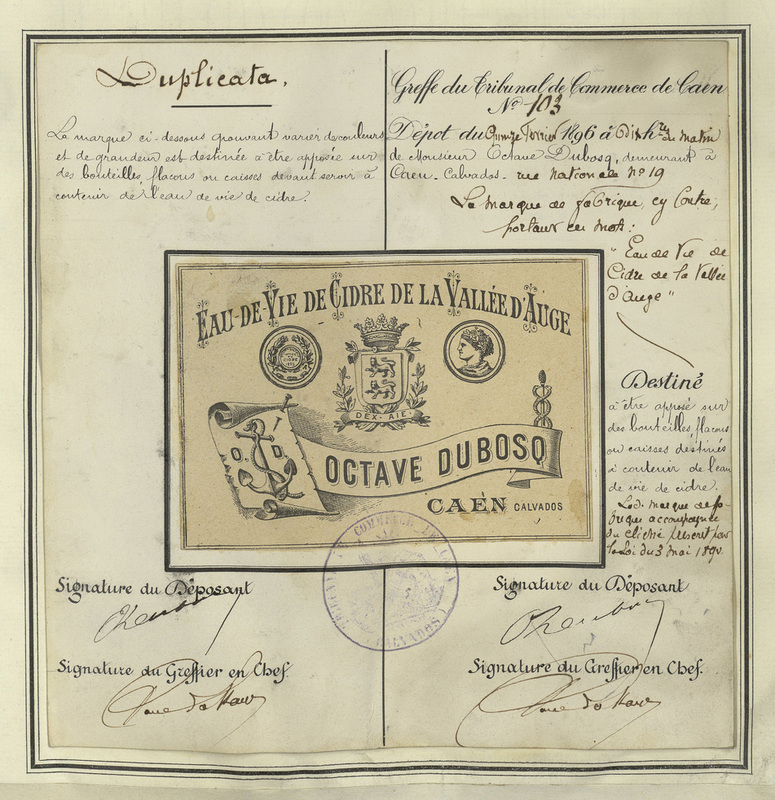 Duplicata.
La marque ci-dessous pouvant varier de couleurs
et de grandeur est destinée à être apposée sur
des bouteilles, flacons ou caisses devant servir à
contenir de l'eau de vie de cidre.
Greffe du Tribunal de Commerce de Caen
N° 103
Dépôt du Quinze Février 1896 à Dix h.res du matin
de Monsieur Octave Dubosq, demeurant à
Caen. Calvados. rue nationale n° 19
La marque de fabrique cy contre,
portant ces mots:
"Eau de Vie de
Cidre de la Vallée
d'Auge"
Destiné
à être apposé sur
des bouteilles flacons
ou caisses destinés
à contenir de l'eau
de vie de cidre.
Lad. marque de fa-
brique accompagnée
du cliché prescrit par
la Loi du 3 mai 1890
EAU-DE-VIE DE CIDRE DE LA VALLÉE D'AUGE
DEX-AIE
O D
OCTAVE DUBOSQ
CAEN CALVADOS
TRIBUNAL DE COMMERCE DE CAEN
(CALVADOS)
Signature du Déposant
Signature du Déposant
Signature du Greffier en Chef.
Signature du Greffier en Chef.